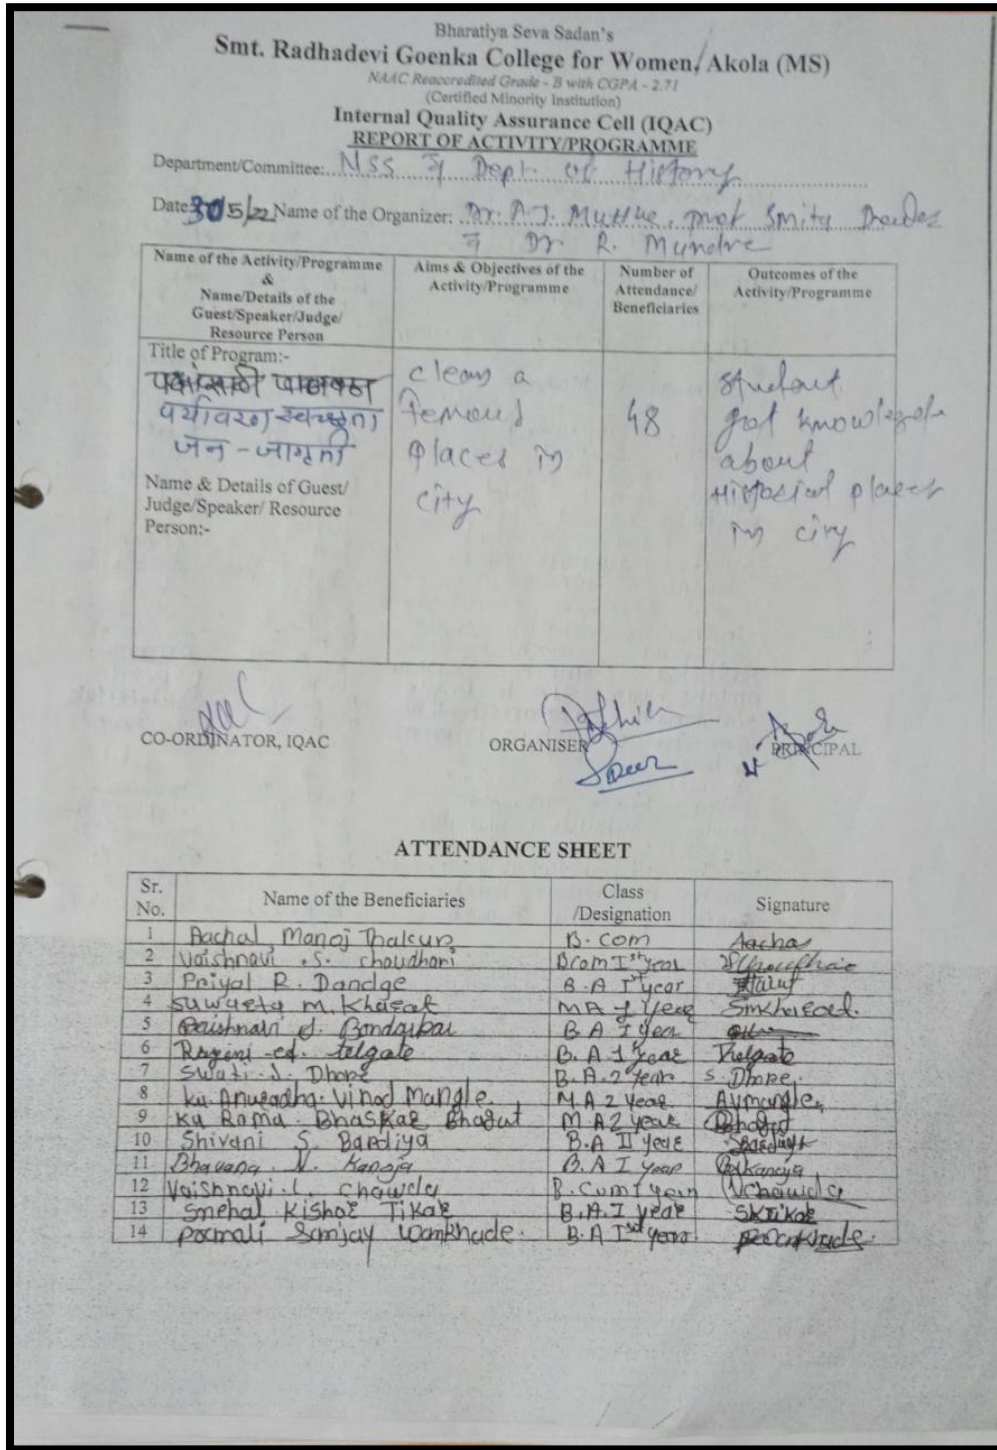 Bharatiya Seva Sadan's
Smt. Radhadevi Goenka College for Women, Akola (MS)
NAAC Reaccredited Grade - B with CGPA - 2.71
(Certified Minority Institution)
Internal Quality Assurance Cell (IQAC)
REPORT OF ACTIVITY/PROGRAMME
Department/Committee: NSS व Dept. of History
Date 30/5/22 Name of the Organizer: Dr. A.J. Prof Smita
व Dr R. Mundre
Name of the Activity/Programme & Name/Details of the Guest/Speaker/Judge/ Resource Person
Aims & Objectives of the Activity/Programme
Number of Attendance/ Beneficiaries
Outcomes of the Activity/Programme
Title of Program:-
पर्यावरण स्वच्छता
जन-जागृती
Name & Details of Guest/
Judge/Speaker/ Resource
Person:-
clean a
femous
places in
city
48
student
got knowledge
about
places
in city
CO-ORDINATOR, IQAC
ORGANISER
PRINCIPAL
ATTENDANCE SHEET
Sr. No. Name of the Beneficiaries Class /Designation Signature
1 Aachal Manoj Thakur B.com Aachal
2 Vaishnavi .S. choudhari Bcom Ist year
3 Priyal R. Dandge B.A Ist year
4 M. Khasat MA I year
5 Vaishnavi B A I year
6 Ragini telgate B.A 1 year Telgate
7 Swati. J. Dhope B.A.2 year S. Dhope.
8 Ku. Anuradha. Vinod Mangle M.A 2 year. Avmangle.
9 Ku Rama. Bhaskar Bhagut M A 2 year
10 Shivani S. Bardiya B.A II year
11 Bhavana. N. Kanoja B.A I year
12 Vaishnavi. L. Chawda B.Com I year VChawda
13 Snehal Kishor Tikar B.A.I year SKTikar
14 Sanjay Wankhade. B.A Ist year